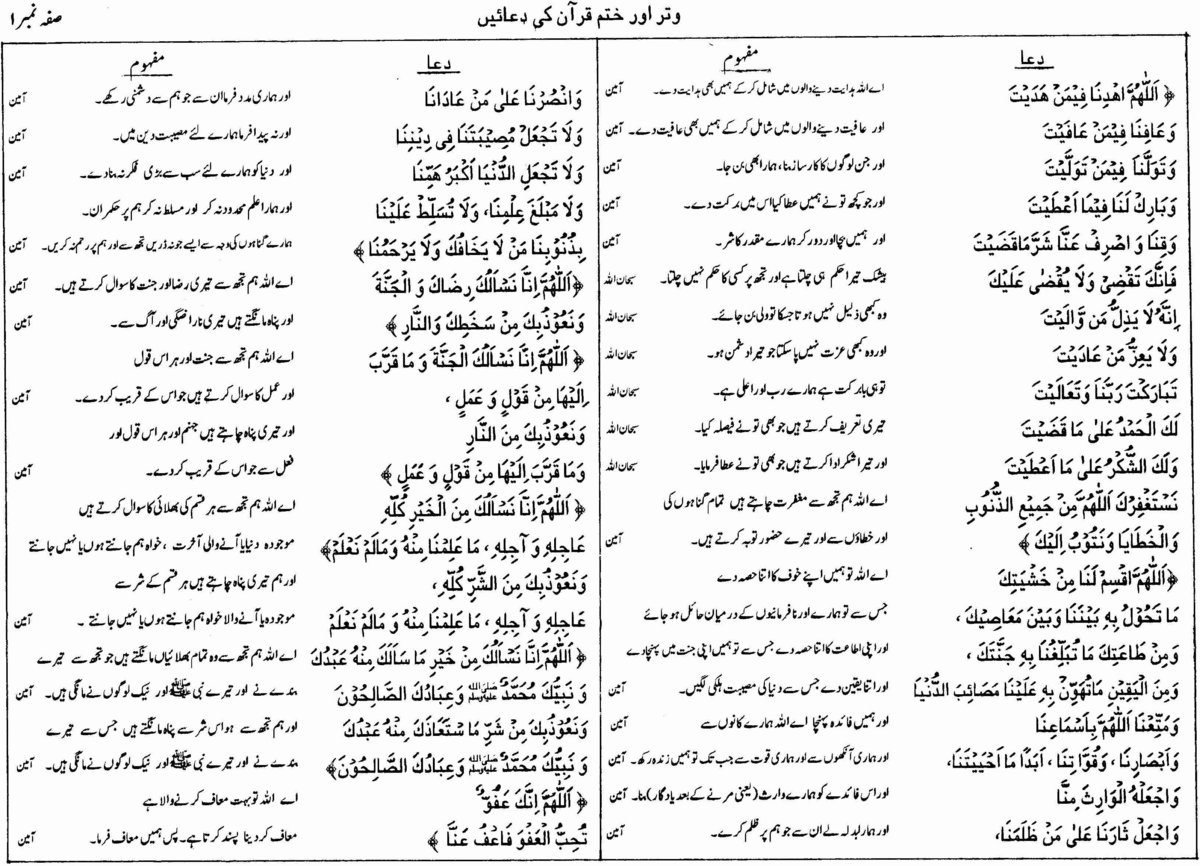 وتر اور ختم قرآن کی دعائیں
صفہ نمبر ۱
دعا
مفہوم
﴿ اَللّٰهُمَّ اهْدِنَا فِيْمَنْ هَدَيْتَ
اے اللہ ہدایت دینے والوں میں شامل کر کے ہمیں بھی ہدایت دے۔ آمین
وَعَافِنَا فِيْمَنْ عَافَيْتَ
اور عافیت دینے والوں میں شامل کر کے ہمیں بھی عافیت دے۔ آمین
وَتَوَلَّنَا فِيْمَنْ تَوَلَّيْتَ
اور جن لوگوں کا کارساز بنا، ہمارا بھی بن جا۔ آمین
وَبَارِكْ لَنَا فِيْمَا اَعْطَيْتَ
اور جو کچھ تو نے ہمیں عطا کیا اس میں برکت دے۔ آمین
وَقِنَا وَ اصْرِفْ عَنَّا شَرَّ مَا قَضَيْتَ
اور ہمیں بچا اور دور کر ہمارے مقدر کا شر۔ آمین
فَاِنَّكَ تَقْضِىْ وَلَا يُقْضٰى عَلَيْكَ
بیشک تیرا حکم ہی چلتا ہے اور تجھ پر کسی کا حکم نہیں چلتا۔ سبحان اللہ
اِنَّهٗ لَا يَذِلُّ مَن وَّالَيْتَ
وہ کبھی ذلیل نہیں ہو تا جسکا تو ولی بن جائے۔ سبحان اللہ
وَلَا يَعِزُّ مَنْ عَادَيْتَ
اور وہ کبھی عزت نہیں پا سکتا جو تیرا دشمن ہو۔ سبحان اللہ
تَبَارَكْتَ رَبَّنَا وَتَعَالَيْتَ
تو ہی بابرکت ہے ہمارے رب اور اعلٰی ہے۔ سبحان اللہ
لَكَ الْحَمْدُ عَلٰى مَا قَضَيْتَ
تیری تعریف کرتے ہیں جو بھی تو نے فیصلہ کیا۔ سبحان اللہ
وَلَكَ الشُّكْرُ عَلٰى مَا اَعْطَيْتَ
اور تیرا شکر ادا کرتے ہیں جو بھی تو نے عطا فرمایا۔ سبحان اللہ
نَسْتَغْفِرُكَ اَللّٰهُمَّ مِنْ جَمِيْعِ الذُّنُوْبِ
اے اللہ ہم تجھ سے مغفرت چاہتے ہیں تمام گناہوں کی
وَالْخَطَايَا وَنَتُوْبُ اِلَيْكَ ﴾
اور خطاؤں سے اور تیرے حضور توبہ کرتے ہیں۔ آمین
﴿اَللّٰهُمَّ اقْسِمْ لَنَا مِنْ خَشْيَتِكَ
اے اللہ تو ہمیں اپنے خوف کا اتنا حصہ دے
مَا تَحُوْلُ بِهٖ بَيْنَنَا وَبَيْنَ مَعَاصِيْكَ ،
جس سے تو ہمارے اور نافرمانیوں کے درمیان حائل ہو جائے
وَمِنْ طَاعَتِكَ مَا تُبَلِّغُنَا بِهٖ جَنَّتَكَ ،
اور اپنی اطاعت کا اتنا حصہ دے جس سے تو ہمیں اپنی جنت میں پہنچا دے
وَمِنَ الْيَقِيْنِ مَا تُهَوِّنُ بِهٖ عَلَيْنَا مَصَائِبَ الدُّنْيَا
اور اتنا یقین دے جس سے دنیا کی مصیبت ہلکی لگیں۔ آمین
وَمَتِّعْنَا اَللّٰهُمَّ بِاَسْمَاعِنَا
اور ہمیں فائدہ پہنچا اے اللہ ہمارے کانوں سے آمین
وَاَبْصَارِنَا ، وَقُوَّاتِنَا ، اَبَدًا مَا اَحْيَيْتَنَا،
اور ہماری آنکھوں سے اور ہماری قوت سے جب تک تو ہمیں زندہ رکھ۔ آمین
وَاجْعَلْهُ الْوَارِثَ مِنَّا
اور اس فائدے کو ہمارے وارث (یعنی مرنے کے بعد یادگار) بنا۔ آمین
وَاجْعَلْ ثَارَنَا عَلٰى مَنْ ظَلَمَنَا،
اور ہمارا بدلہ لے ان سے جو ہم پر ظلم کرے۔ آمین
دعا
مفہوم
وَانْصُرْنَا عَلٰى مَنْ عَادَانَا
اور ہماری مدد فرما ان سے جو ہم سے دشمنی رکھے۔ آمین
وَلَا تَجْعَلْ مُصِيْبَتَنَا فِى دِيْنِنَا
اور نہ پیدا فرما ہمارے لئے مصیبت دین میں۔ آمین
وَلَا تَجْعَلِ الدُّنْيَا اَكْبَرُ هَمِّنَا
اور دنیا کو ہمارے لئے سب سے بڑی فکر نہ بنا دے۔ آمین
وَلَا مَبْلَغَ عِلْمِنَا، وَلَا تُسَلِّطْ عَلَيْنَا
اور ہمارا علم محدود نہ کر اور مسلط نہ کر ہم پر حکمران۔
بِذُنُوْبِنَا مَنْ لَا يَخَافُكَ وَلَا يَرْحَمُنَا ﴾
ہمارے گناہوں کی وجہ سے ایسے جو نہ ڈریں تجھ سے اور ہم پر رحم نہ کریں۔ آمین
﴿اَللّٰهُمَّ اِنَّا نَسْاَلُكَ رِضَاكَ وَ الْجَنَّةَ
اے اللہ ہم تجھ سے تیری رضا اور جنت کا سوال کرتے ہیں۔ آمین
وَنَعُوْذُبِكَ مِنْ سَخَطِكَ وَالنَّارِ ﴾
اور پناہ مانگتے ہیں تیری ناراضگی اور آگ سے۔ آمین
﴿ اَللّٰهُمَّ اِنَّا نَسْاَلُكَ الْجَنَّةَ وَ مَا قَرَّبَ
اے اللہ ہم تجھ سے جنت اور ہر اس قول
اِلَيْهَا مِنْ قَوْلٍ وَ عَمَلٍ ،
اور عمل کا سوال کرتے ہیں جو اس کے قریب کر دے۔ آمین
وَنَعُوْذُبِكَ مِنَ النَّارِ
اور تیری پناہ چاہتے ہیں جہنم اور ہر اس قول اور
وَمَا قَرَّبَ اِلَيْهَا مِنْ قَوْلٍ وَ عَمَلٍ ﴾
فعل سے جو اس کے قریب کر دے۔ آمین
﴿ اَللّٰهُمَّ اِنَّا نَسْاَلُكَ مِنَ الْخَيْرِ كُلِّهٖ
اے اللہ ہم تجھ سے ہر قسم کی بھلائی کا سوال کرتے ہیں
عَاجِلِهٖ وَ آجِلِهٖ ، مَا عَلِمْنَا مِنْهُ وَمَا لَمْ نَعْلَمْ﴾
موجودہ دنیا یا آنے والی آخرت ، خواہ ہم جانتے ہوں یا نہیں جانتے
وَنَعُوْذُبِكَ مِنَ الشَّرِّ كُلِّهٖ ،
اور ہم تیری پناہ چاہتے ہیں ہر قسم کے شر سے
عَاجِلِهٖ وَ آجِلِهٖ ، مَا عَلِمْنَا مِنْهُ وَ مَا لَمْ نَعْلَمْ
موجودہ یا آنے والا خواہ ہم جانتے ہوں یا نہیں جانتے ۔ آمین
﴿ اَللّٰهُمَّ اِنَّا نَسْاَلُكَ مِنْ خَيْرِ مَا سَاَلَكَ مِنْهُ عَبْدُكَ
اے اللہ ہم تجھ سے وہ تمام بھلائیاں مانگتے ہیں جو تجھ سے تیرے
وَ نَبِيُّكَ مُحَمَّدٌ ﷺ وَعِبَادُكَ الصَّالِحُوْنَ
بندے نے اور تیرے نبی ﷺ اور نیک لوگوں نے مانگی ہیں۔ آمین
وَنَعُوْذُبِكَ مِنْ شَرِّ مَا سْتَعَاذَكَ مِنْهُ عَبْدُكَ
اور ہم تجھ سے ہو اس شر سے پناہ مانگتے ہیں جس سے تیرے
وَ نَبِيُّكَ مُحَمَّدٌ ﷺ وَعِبَادُكَ الصَّالِحُوْنَ﴾
بندے نے اور تیرے نبی ﷺ اور نیک لوگوں نے مانگی ہیں۔ آمین
﴿ اَللّٰهُمَّ اِنَّكَ عَفُوٌّ
اے اللہ تو بہت معاف کرنے والا ہے
تُحِبُّ الْعَفْوَ فَاعْفُ عَنَّا ﴾
معاف کر دینا پسند کرتا ہے۔ پس ہمیں معاف فرما۔ آمین